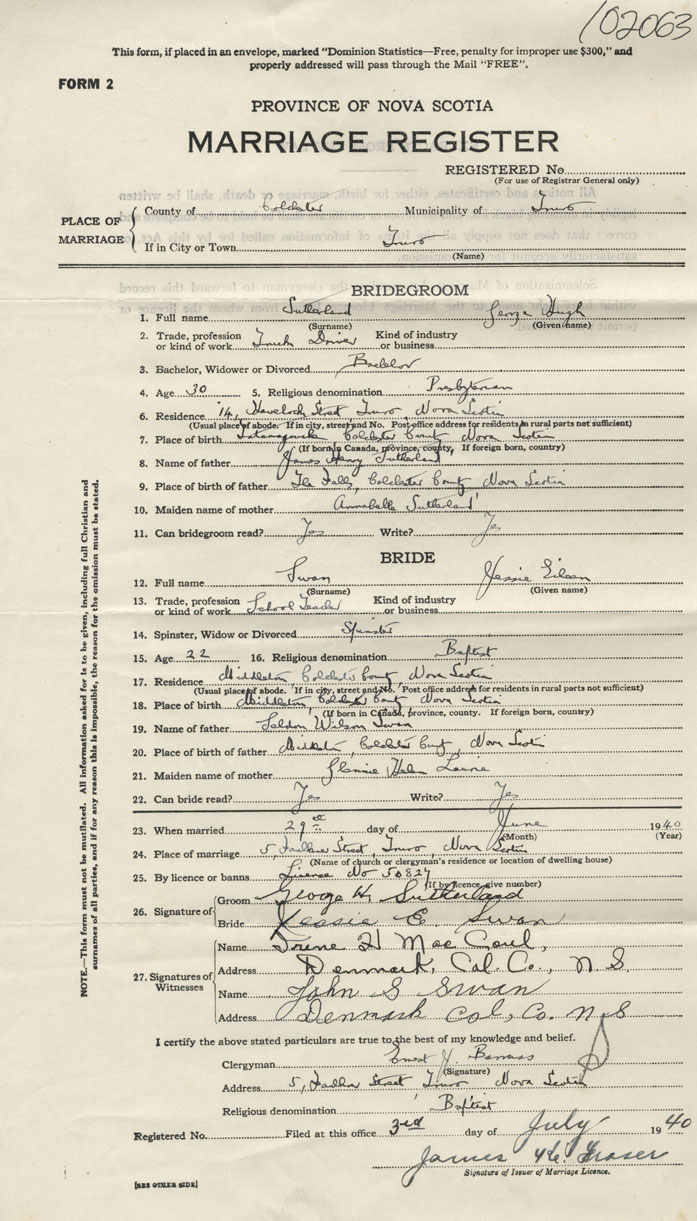 102063
This form, if placed in an envelope, marked "Dominion Statistics—Free, penalty for improper use $300," and
properly addressed will pass through the Mail "FREE".
FORM 2
PROVINCE OF NOVA SCOTIA
MARRIAGE REGISTER
REGISTERED No.
(For use of Registrar General only)
PLACE OF MARRIAGE
County of Colchester Municipality of Truro
If in City or Town Truro
(Name)
BRIDEGROOM
1. Full name Sutherland George Hugh
(Surname) (Given name)
2. Trade, profession or kind of work Truck Driver Kind of industry or business
3. Bachelor, Widower or Divorced Bachelor
4. Age 30 5. Religious denomination Presbyterian
6. Residence 14, Havelock Street Truro, Nova Scotia
(Usual place of abode. If in city, street and No. Post office address for residents in rural parts not sufficient)
7. Place of birth Tatamagouche Colchester County Nova Scotia
(If born in Canada, province, county, If foreign born, country)
8. Name of father James Henry Sutherland
9. Place of birth of father Falls, Colchester County Nova Scotia
10. Maiden name of mother Annabelle Sutherland
11. Can bridegroom read? Yes Write? Yes
BRIDE
12. Full name Swan Jessie Eileen
(Surname) (Given name)
13. Trade, profession or kind of work School Teacher Kind of industry or business
14. Spinster, Widow or Divorced Spinster
15. Age 22 16. Religious denomination Baptist
17. Residence Middleton, Colchester County, Nova Scotia
(Usual place of abode. If in city, street and No. Post office address for residents in rural parts not sufficient)
18. Place of birth Middleton, Colchester County Nova Scotia
(If born in Canada, province, county. If foreign born, country)
19. Name of father Seldon Wilson Swan
20. Place of birth of father Middleton, Colchester County, Nova Scotia
21. Maiden name of mother Helen
22. Can bride read? Yes Write? Yes
23. When married 29th day of June 1940
(Month) (Year)
24. Place of marriage 5, Faulkner Street, Truro, Nova Scotia
(Name of church or clergyman's residence or location of dwelling house)
25. By licence or banns License No 50827
(If by licence, give number)
26. Signature of
Groom George H. Sutherland
Bride Jessie E. Swan
27. Signatures of Witnesses
Name H Mac
Address Denmark, Col. Co., N.S.
Name John S Swan
Address Denmark Col, Co. N S
I certify the above stated particulars are true to the best of my knowledge and belief.
Clergyman Ernest
(Signature)
Address 5, Faulkner Street Truro Nova Scotia
Religious denomination Baptist
Registered No. Filed at this office 3rd day of July 1940
James Fraser
Signature of Issuer of Marriage Licence.
[SEE OTHER SIDE]
NOTE.—This form must not be mutilated. All information asked for is to be given, including full Christian and
surnames of all parties, and if for any reason this is impossible, the reason for the omission must be stated.